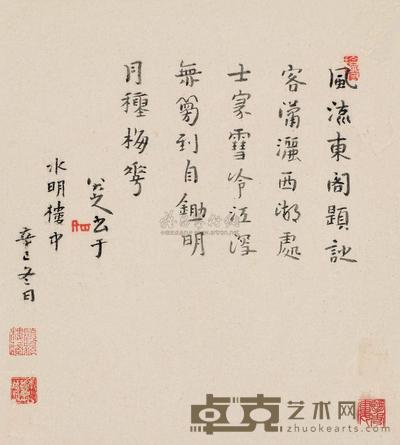 風流東閣題詩
客瀟灑西湖處
士家雪冷江深
無夢到自鋤明
月種梅花
書于
水明樓中
辛巳冬日
卓克艺术网
zhuokearts.com